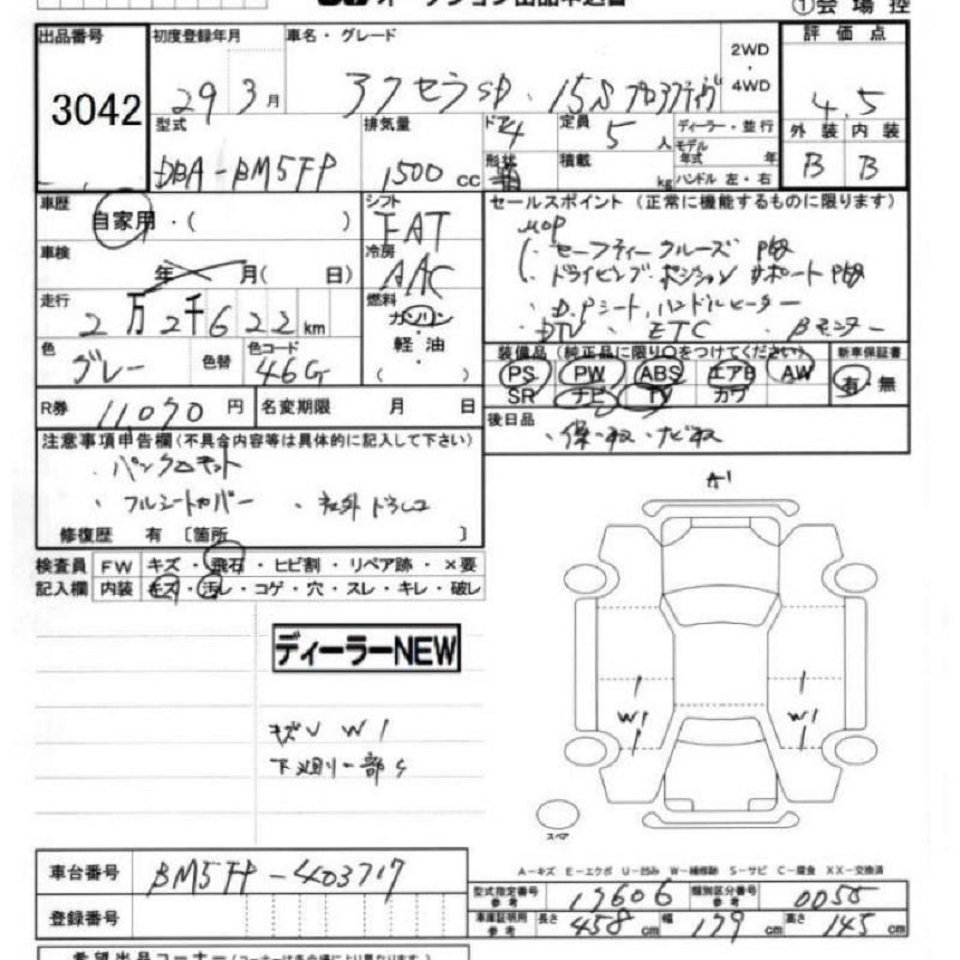 オークション出品申込書
①会場控
出品番号 初度登録年月 車名・グレード 2WD・4WD 評価点
3042 29 3月 アクセラSP・15Sプロアクティヴ 4.5
型式 排気量 ドア 4 定員 5人 ディーラー・並行 外装 内装
DBA-BM5FP 1500cc 形状 積載 kg モデル年式 年 ハンドル 左・右 B B
車歴 自家用・( ) シフト FAT セールスポイント (正常に機能するものに限ります)
車検 年 月( 日) 冷房 AAC MOP
・セーフティークルーズPKG
・ドライビングポジションサポートPKG
走行 2万2千622km 燃料 ガソリン ・D.Pシート,ハンドルヒーター
軽油 ・( ) ・DTV ・ETC ・Bモニター
色 グレー 色替 色コード 46G 装備品 (純正品に限り○をつけてください) 新車保証書
PS PW ABS エアB AW 有・無
SR ナビ TV カワ
R券 11070円 名変期限 月 日 後日品
・保・取・ナビ取
注意事項申告欄(不具合内容等は具体的に記入して下さい)
・パンクキット
・フルシートカバー ・社外ドラレコ
修復歴 有 〔箇所 〕
A1
検査員 FW キズ・飛石・ヒビ割・リペア跡・×要
記入欄 内装 キズ・汚レ・コゲ・穴・スレ・キレ・破レ
ディーラーNEW
W1 W1
キズU W1
下廻り一部S
スペア
A-キズ E-エクボ U-凹み W-補修跡 S-サビ C-腐食 XX-交換済
車台番号 BM5FP-403717
型式指定番号 参考 17606 類別区分番号 参考 0055
登録番号
車庫証明用 参考 長さ 458cm 幅 179cm 高さ 145cm
希望出品コーナー